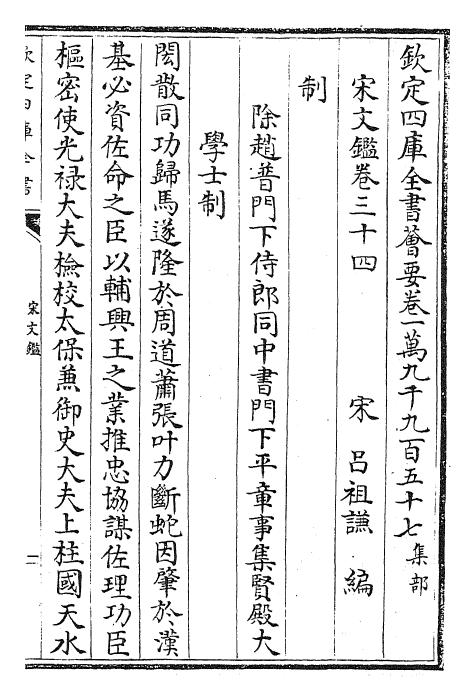 欽定四庫全書薈要卷一萬九千九百五十七集部
宋文鑑卷三十四 宋 呂祖謙 編
制
除趙普門下侍郎同中書門下平章事集賢殿大
學士制
閎散同功歸馬遂隆於周道蕭張叶力斷蛇因肇於漢
基必資佐命之臣以輔興王之業推忠協謀佐理功臣
樞密使光禄大夫檢校太保兼御史大夫上柱國天水
欽定四庫全書
宋文鑑